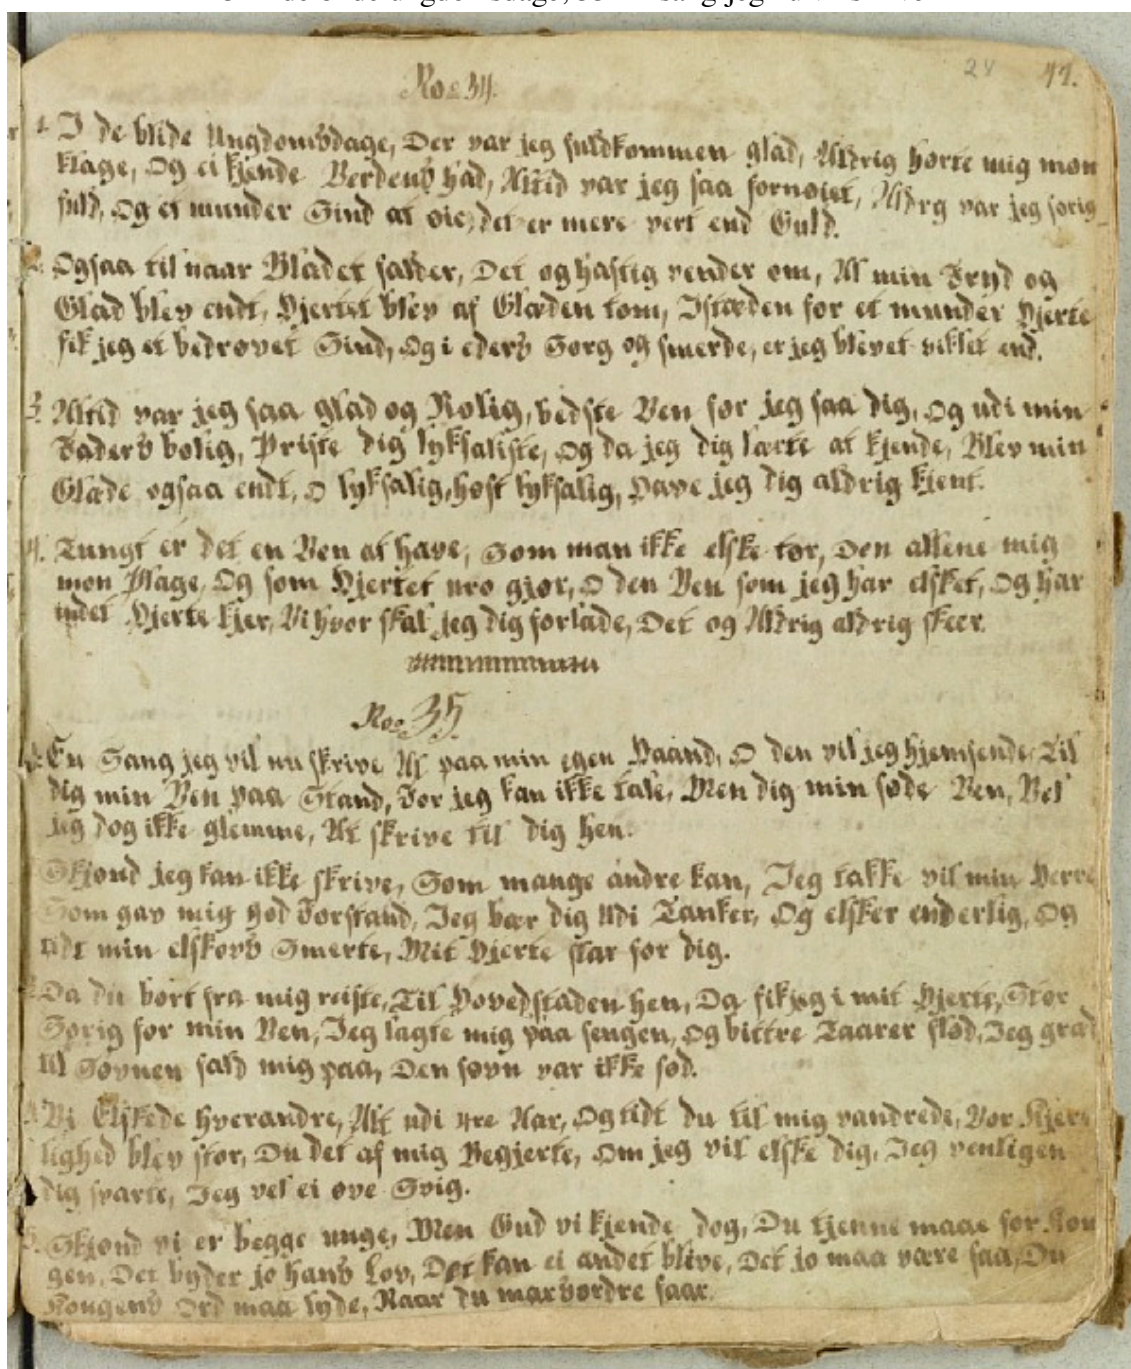 24 47.
No 34.
1. I de blide Ungdomsdage, Der var jeg fuldkommen glad, Aldrig hørte mig mon
klage, Og ei kjende Verdens had, Altid var jeg saa fornøiet, Aldrg var jeg sorig
fuld, Og et munder Sind at eie, det er mere vert end Guld.
2. Ogsaa til naar Bladet falder, Det og hastig vender om, Al min Fryd og
Glad blev endt, Hjertet blev af Glæden tom, Istæden for et munder Hjerte
fik jeg et bedrøvet Sind, Og i eders Sorg og smerde, er jeg blevet viklet end.
3. Altid var jeg saa glad og Rolig, bedste Ven før jeg saa dig, Og udi min
Faders bolig, Priste dig lyksaliste, Og da jeg dig lærte at kjende, Blev min
Glæde ogsaa endt, O lyksalig, høst lyksalig, Have jeg dig aldrig kjent.
4. Tungt er det en Ven at have, Som man ikke elske tør, Den allene mig
mon Plage, Og som Hjertet uro gjør, O den Ven som jeg har elsket, Og har
indet Hjerte kjer, Vi hvor skal jeg dig forlade, Det og Aldrig aldrig skeer.
No 35.
En Sang jeg vil nu skrive Af paa min egen Haand, O den vil jeg hjemsende Til
dig min Ven paa Stand, For jeg kan ikke tale, Men dig min søde Ven, Vel
jeg dog ikke glemme, At skrive til dig hen.
Skjønd jeg kan ikke skrive, Som mange andre kan, Jeg takke vil min Herre
Som gav mig god Forstand, Jeg bær dig Udi Tanker, Og elsker enderlig, Og
tidt min elskovs Smerte, Mit Hjerte slar for dig.
Da du bort fra mig reiste, Til Hovedstaden hen, Da fik jeg i mit Hjerte, Stor
Sorig for min Ven, Jeg lagte mig paa sengen, Og bittre Taarer flød, Jeg græd
til Søvnen fald mig paa, Den søvn var ikke sød.
4. Vi Elskede hverandre, Alt udi 4re Aar, Og tidt du til mig vandrede, Vor Kjer
lighed blev stor, Du det af mig Begjerte, Om jeg vil elske dig, Jeg venligen
dig svarte, Jeg vel ei øve Svig.
5. Skjønd vi er begge unge, Men Gud vi kjende dog, Du tjenne maae for Kon
gen, Det byder jo hans Lov, Det kan ei andet blive, Det jo maa være saa, Du
Kongens Ord maa lyde, Naar du marsordre faar.